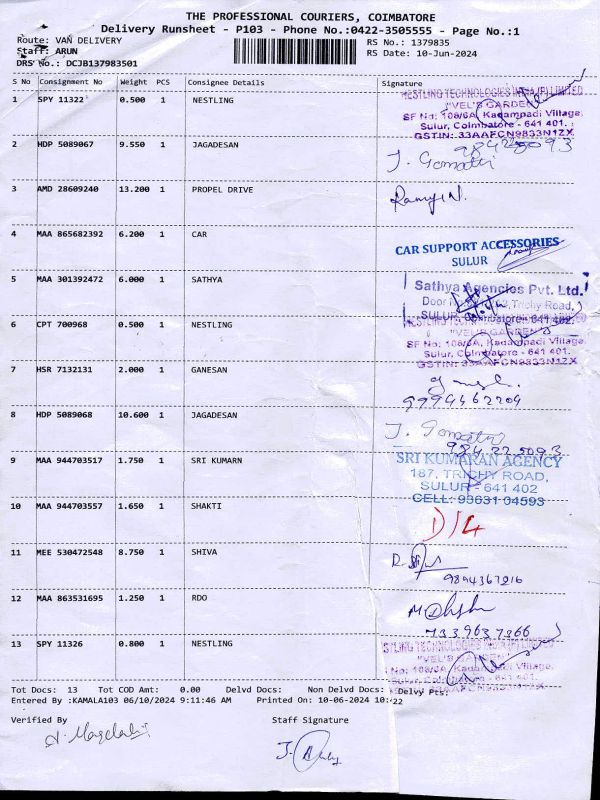 THE PROFESSIONAL COURIERS, COIMBATORE
Delivery Runsheet - P103 - Phone No.:0422-3505555 - Page No.:1
Route: VAN DELIVERY RS No.: 1379835
Staff: ARUN RS Date: 10-Jun-2024
DRS No.: DCJB137983501
S No Consignment No Weight PCS Consignee Details Signature
1 SPY 11322 0.500 1 NESTLING
NESTLING TECHNOLOGIES INDIA (P) LIMITED
"VEL'S GARDEN"
SF No: 108/6A, Kadampadi Village,
Sulur, Coimbatore - 641 401.
GSTIN: 33AAFCN9833N1ZX
2 HDP 5089067 9.550 1 JAGADESAN
J. Gomathi
3 AMD 28609240 13.200 1 PROPEL DRIVE
4 MAA 865682392 6.200 1 CAR
CAR SUPPORT ACCESSORIES
SULUR
5 MAA 301392472 6.000 1 SATHYA
Sathya Agencies Pvt. Ltd.
Trichy Road,
SULUR, Coimbatore - 641 402.
6 CPT 700968 0.500 1 NESTLING
"VEL'S GARDEN"
SF No: 108/6A, Kadampadi Village,
Sulur, Coimbatore - 641 401.
GSTIN: 33AAFCN9833N1ZX
7 HSR 7132131 2.000 1 GANESAN
9994462204
8 HDP 5089068 10.600 1 JAGADESAN
J. Gomathi
9 MAA 944703517 1.750 1 SRI KUMARN
SRI KUMARAN AGENCY
187, TRICHY ROAD,
SULUR - 641 402
CELL: 93631 04593
10 MAA 944703557 1.650 1 SHAKTI
D/L
11 MEE 530472548 8.750 1 SHIVA
9894367816
12 MAA 863531695 1.250 1 RDO
7339637366
13 SPY 11326 0.800 1 NESTLING
NESTLING TECHNOLOGIES INDIA (P) LIMITED
"VEL'S GARDEN"
No: 108/6A, Kadampadi Village,
Sulur, Coimbatore - 641 401.
GSTIN: 33AAFCN9833N1ZX
Tot Docs: 13 Tot COD Amt: 0.00 Delvd Docs: Non Delvd Docs: Delvy Pts:
Entered By :KAMALA103 06/10/2024 9:11:46 AM Printed On: 10-06-2024 10:22
Verified By Staff Signature